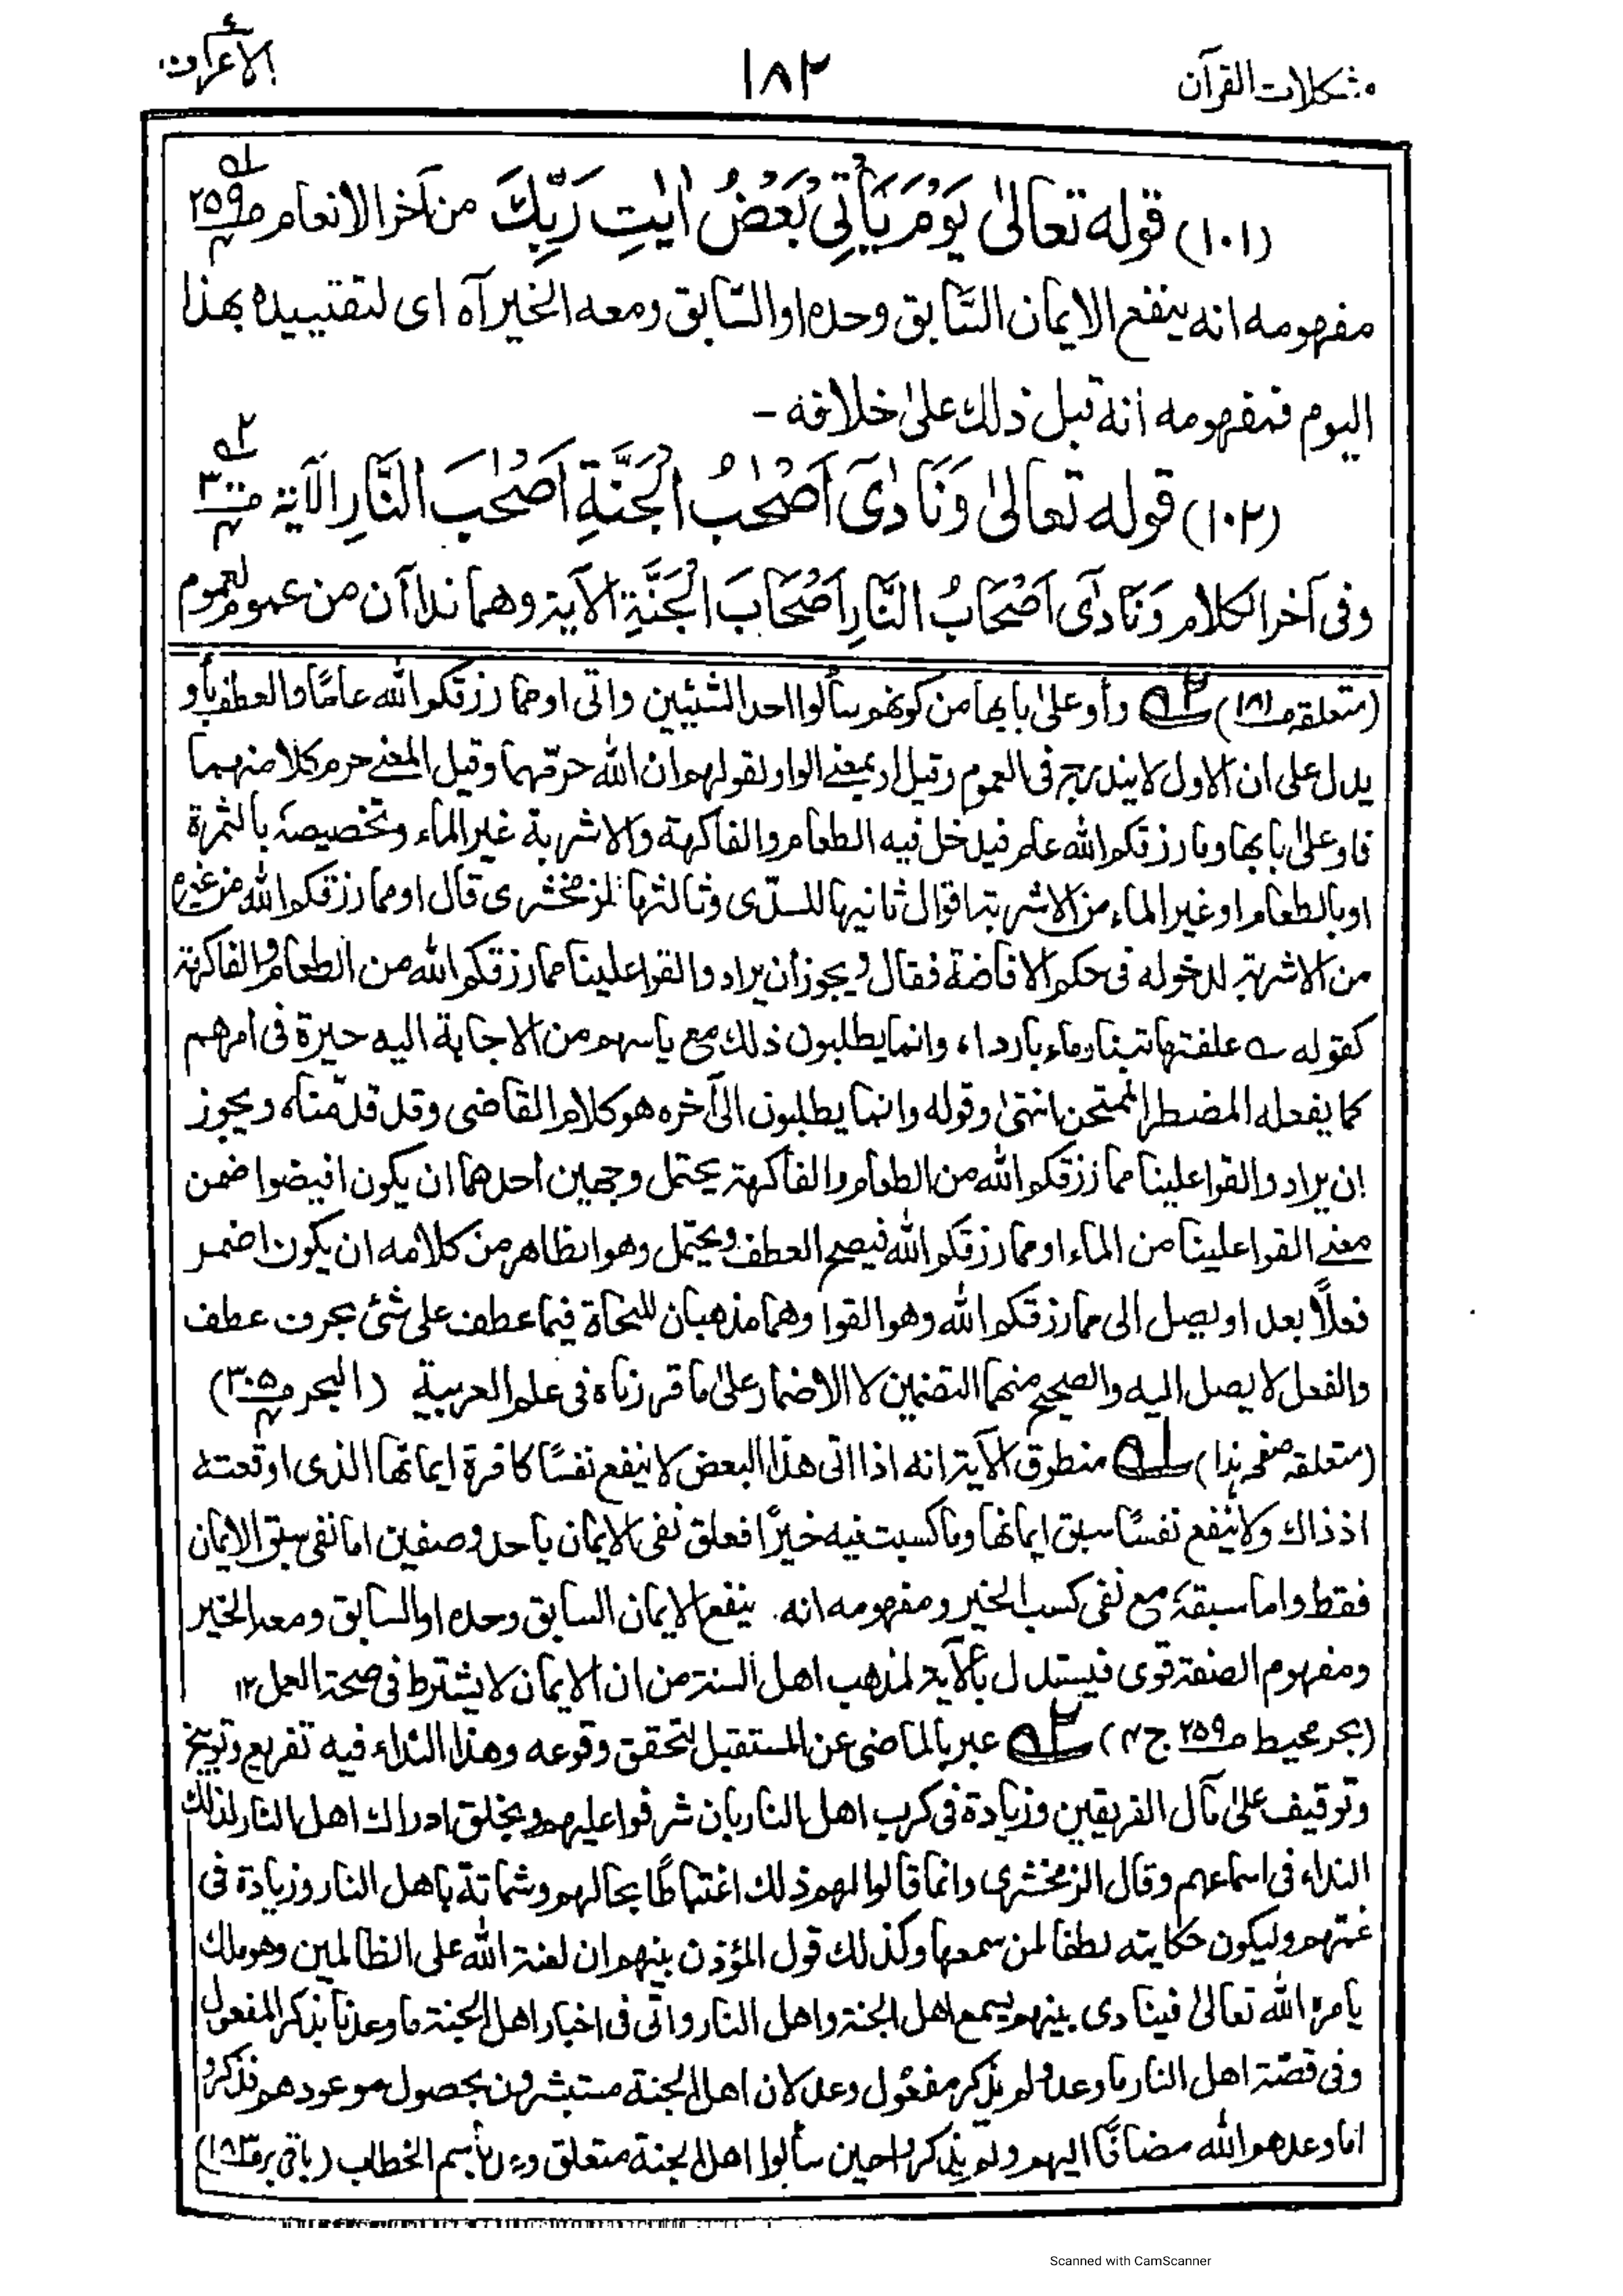 مشكلات القرآن ١٨٢ الأعراف
(١٠١) قوله تعالىٰ يَوْمَ يَأْتِي بَعْضُ اٰيٰتِ رَبِّكَ من آخر الانعام ص٢٥٩ ج٤ ١ه
مفهومه انه ينفع الايمان السَّابق وحده او السَّابق ومعه الخير آه اى لتقييده بهذا
اليوم فمفهومه انه قبل ذلك علىٰ خلافه –
(١٠٢) قوله تعالىٰ وَنَادٰىٓ اَصْحٰبُ الْجَنَّةِ اَصْحٰبَ النَّارِ الآية ص٣٠٠ ج٤ ٢ه
وفى آخر الكلام وَنَادٰٓى اَصْحَابُ النَّارِ اَصْحَابَ الْجَنَّةِ الآية وهما ندا آن من عموم لعموم
(متعلقه ص١٨١) ٣ه وأو علىٰ بابها من كونهم سألوا احد الشيئين واتى او مما رزقكم الله عامًا والعطف بأو
يدل على ان الاول لا يندرج فى العموم وقيل او بمعنے الواو لقولهم ان الله حرّمهما وقيل المعنے حرم كلا منهما
فاو علىٰ بابها وما رزقكم الله عام فيدخل فيه الطعام والفاكهة والاشربة غير الماء وتخصيصه بالثمرة
او بالطعام او غير الماء من الاشربة اقوال ثانيها للسدّى وثالثها للزمخشرى قال او مما رزقكم الله من غيره
من الاشربة لدخوله فى حكم الافاضة فقال ويجوز أن يراد والقوا علينا مما رزقكم الله من الطعام والفاكهة
كقوله ؎ علفتها تبنا وماء باردا، وانما يطلبون ذلك مع يأسهم من الاجابة اليه حيرة فى امرهم
كما يفعله المضطر الممتحن انتهىٰ وقوله وانما يطلبون الىٰ آخره هو كلام القاضى وقد قدّمناه ويجوز
ان يراد والقوا علينا مما رزقكم الله من الطعام والفاكهة يحتمل وجهين أحدهما ان يكون افيضوا ضمن
معنے القوا علينا من الماء او مما رزقكم الله فيصح العطف ويحتمل وهو الظاهر من كلامه ان يكون اضمر
فعلاً بعد او يصل الى مما رزقكم الله وهو القوا وهما مذهبان للنحاة فيما عطف على شئ بحرف عطف
والفعل لا يصل اليه والصحيح منهما التضمين لا الاضمار علىٰ ما قررناه فى علم العربية (البحر ص٣٠٥ ج٤)
(متعلقه صفحه هٰذا) ١ه منطوق الآية انه اذا اتى هذا البعض لا ينفع نفسًا كافرة ايمانها الذى اوقعته
اذ ذاك ولا ينفع نفسًا سبق ايمانها وما كسبت فيه خيرًا فعلق نفى الايمان باحد وصفين اما نفى سبق الايمان
فقط واما سبقه مع نفى كسب الخير ومفهومه انه ينفع الايمان السابق وحده او السابق ومعه الخير
ومفهوم الصفة قوى فيستدل بالآية لمذهب اهل السنة من ان الايمان لا يشترط فى صحة العمل ١٢
(بحر محيط ص٢٥٩ ج٤) ٢ه عبر بالماضى عن المستقبل لتحقق وقوعه وهذا النداء فيه تقريع وتوبيخ
وتوقيف علىٰ مآل الفريقين وزيادة فى كرب اهل النار بان شرفوا عليهم ويخلق ادراك اهل النار لذلك
النداء فى اسماعهم وقال الزمخشرى وانما قالوا لهم ذلك اغتباطًا بحالهم وشماتة باهل النار وزيادة فى
غمّهم وليكون حكايته لطفا لمن سمعها وكذلك قول المؤذن بينهم ان لعنة الله على الظالمين وهو ملك
يامره الله تعالىٰ فينادى بينهم يسمع اهل الجنة واهل النار واتٰى فى اخبار اهل الجنة ما وعدنا بذكر المفعول
وفى قصّة اهل النار ما وعد ولم يذكر مفعول وعد لان اهل الجنة مستبشرون بحصول موعودهم فذكروا
اما وعدهم الله مضافًا اليهم ولم يذكروا حين سألوا اهل الجنة متعلق وعد بأسم الخطاب (باقى بر ص١٨٣)
Scanned with CamScanner